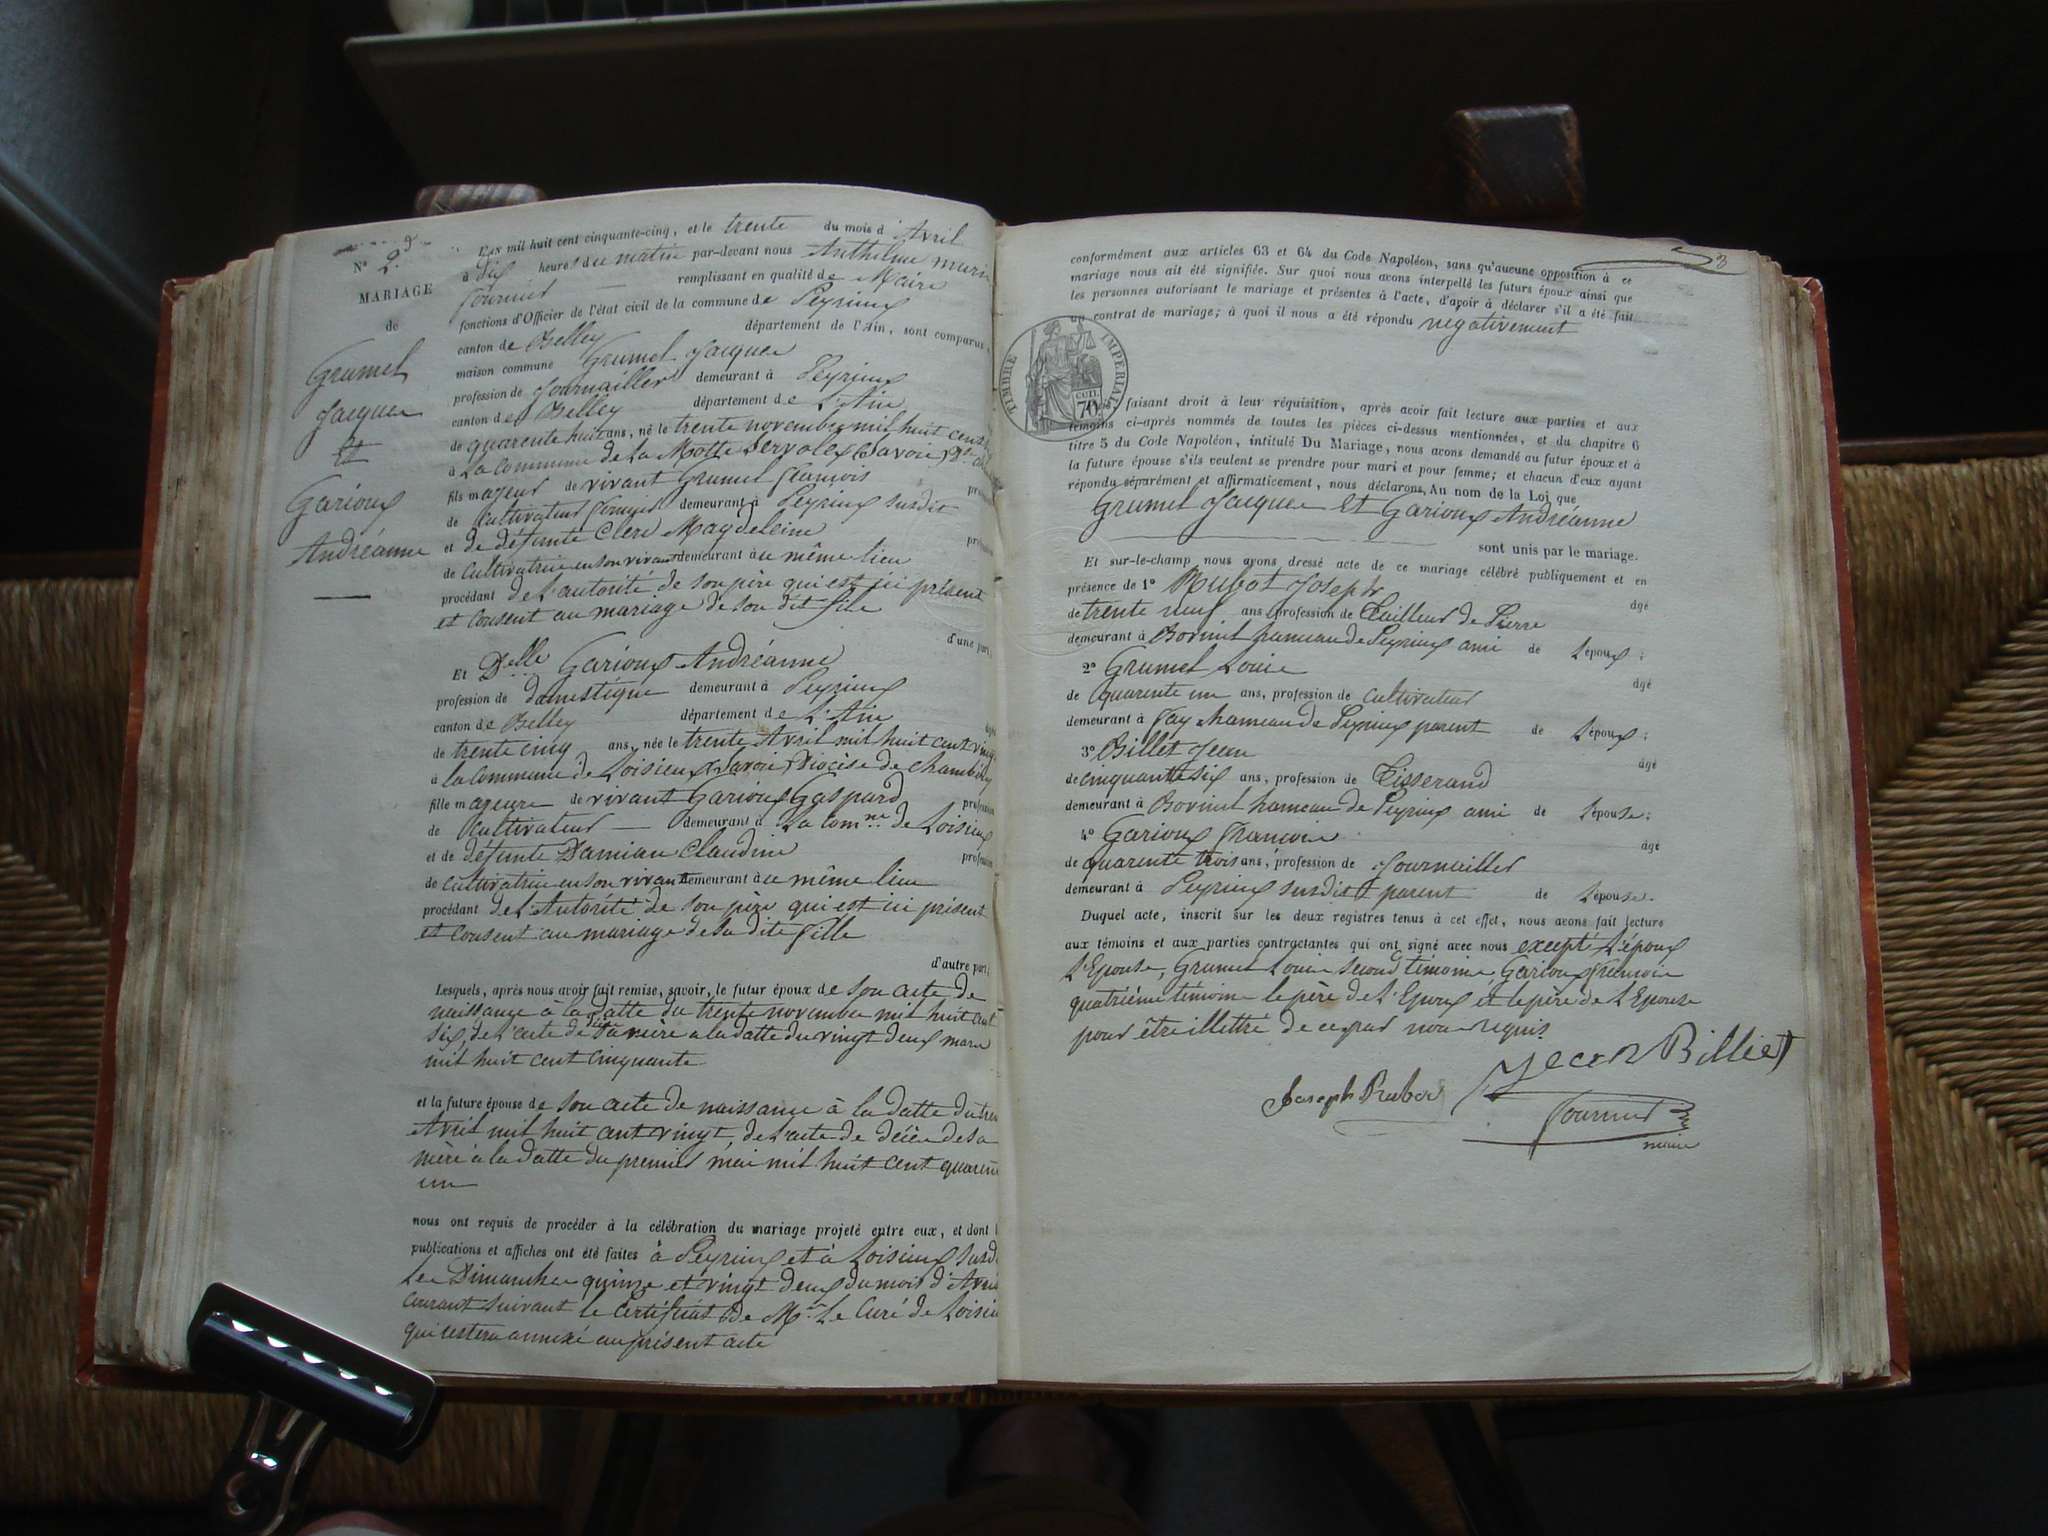 Nº 2.
MARIAGE
de
Grumel
Jacques
et
Garioux
Andréanne
L'an mil huit cent cinquante-cinq, et le trente du mois d'Avril
à dix heures du matin par-devant nous Anthelme
Fournier remplissant en qualité de Maire
fonctions d'Officier de l'état civil de la commune de Peyrieux
canton de Belley département de l'Ain, sont comparus
maison commune Grumel Jacques
profession de Journaillier demeurant à Peyrieux
canton de Belley département de L'Ain
de quarente huit ans, né le trente novembre mil huit cent
à La Commune de La Motte Servolex (Savoie)
fils majeur de vivant Grumel François
de Cultivateur demeurant à Peyrieux susdit
et de défunte Clerc Magdeleine
de Cultivatrice en son vivant demeurant à ce même lieu
procédant de l'autorité de son père qui est ici présent
et consent au mariage de son dit fils
d'une part,
Et Delle Garioux Andréanne
profession de domestique demeurant à Peyrieux
canton de Belley département de L'Ain
de trente cinq ans, née le trente Avril mil huit cent vingt
à la commune de Loisieux (Savoie) Diocèse de Chambéry
fille majeure de vivant Garioux Gaspard
de Cultivateur demeurant à La Comne de Loisieux
et de défunte Damian Claudine
de cultivatrice en son vivant demeurant à ce même lieu
procédant de L'Autorité de son père qui est ici présent
et consent au mariage de sa dite fille
d'autre part;
Lesquels, après nous avoir fait remise, savoir, le futur époux de son acte de
naissance à la datte du trente novembre mil huit cent
six, de l'acte de sa mère a la datte du vingt deux mars
mil huit cent cinquante
et la future épouse de son acte de naissance à la datte du
Avril mil huit cent vingt, de l'acte de décès de sa
mère a la datte du premier mai mil huit cent quarente
un
nous ont requis de procéder à la célébration du mariage projeté entre eux, et dont
publications et affiches ont été faites à Peyrieux et à Loisieux
Les Dimanches quinze et vingt deux du mois d'Avril
courant suivant le Certificat de Mr Le Curé de Loisieux
qui restera annexé au présent acte
3
conformément aux articles 63 et 64 du Code Napoléon, sans qu'aucune opposition à ce
mariage nous ait été signifiée. Sur quoi nous avons interpellé les futurs époux ainsi que
les personnes autorisant le mariage et présentes à l'acte, d'avoir à déclarer s'il a été fait
un contrat de mariage; à quoi il nous a été répondu negativement
TIMBRE IMPERIAL
CEN.
70
faisant droit à leur réquisition, après avoir fait lecture aux parties et aux
témoins ci-après nommés de toutes les pièces ci-dessus mentionnées, et du chapitre 6
titre 5 du Code Napoléon, intitulé Du Mariage, nous avons demandé au futur époux et à
la future épouse s'ils veulent se prendre pour mari et pour femme; et chacun d'eux ayant
répondu séparément et affirmativement, nous déclarons, Au nom de la Loi que
Grumel Jacques et Garioux Andréanne
sont unis par le mariage.
Et sur-le-champ nous avons dressé acte de ce mariage célébré publiquement et en
présence de 1º Rubot Joseph âgé
de trente neuf ans, profession de Tailleur de Pierre
demeurant à Borvint hameau de Peyrieux ami de L'époux;
2º Grumel Louis âgé
de quarente un ans, profession de cultivateur
demeurant à Fay hameau de Peyrieux parent de L'époux;
3º Billet Jean âgé
de cinquante six ans, profession de Tisserand
demeurant à Borvint hameau de Peyrieux ami de L'épouse;
4º Garioux François âgé
de quarente trois ans, profession de Journaillier
demeurant à Peyrieux susdit parent de L'épouse.
Duquel acte, inscrit sur les deux registres tenus à cet effet, nous avons fait lecture
aux témoins et aux parties contractantes qui ont signé avec nous excepté L'époux
L'Epouse, Grumel Louis second témoin, Garioux François
quatrième témoin le père de L'Epoux et le père de L'Epouse
pour être illettré de ce par nous requis
Jean Billiet
Joseph Rubot
Fournier
maire